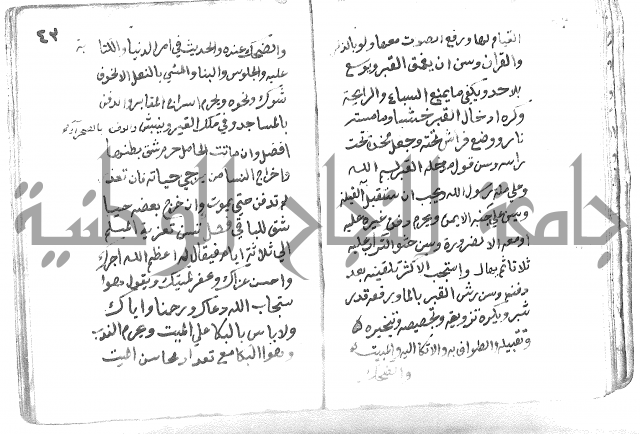 القيام لها ورفع الصوت معها ولو بالذكر
والقران وسن ان يعمق القبر ويوسع
بلا حد ويكفي ما يمنع السباع والرايحة
وكره ادخال القبر خشبا وما مسته
نار ووضع فراش تحته وجعل مخدة تحت
راسه وسن قول مدخله القبر بسم الله
وعلى ملة رسول الله ويجب ان يستقبل القبلة
ويسن على جنبه الايمن ويحرم دفن غيره عليه
او معه الا لضرورة وسن حثو التراب عليه
ثلاثا ثم يهال واستحب الاكثر تلقينه بعد
دفنه وسن رش القبر بالما ورفعه قدر
شبر ويكره تزويقه وتجصيصه وتبخيره
وتقبيله والطواف به والاتكا اليه والمبيت
والضحك
٤٢
والضحك عنده والحديث في امر الدنيا والكتابة
عليه والجلوس والبنا والمشي بالنعل الا لخوف
شوك ونحوه ويحرم اسراج المقابر والدفن
بالمساجد وفي ملك الغير وينبش والدفن بالصحرا
افضل وان ماتت الحامل حرم شق بطنها
واخراج النسا من يرجى حياته فان تعذر
لم تدفن حتى يموت وان خرج بعضه حيا
شق للباقي فصل تسن تعزية المسلم
الى ثلاثة ايام فيقال له اعظم الله اجرك
واحسن عزاك وغفر لميتك ويقول هو
استجاب الله دعاك ورحمنا واياك
ولا باس بالبكا على الميت ويحرم الندب
وهو البكا مع تعداد محاسن الميت
جامعة النجاح الوطنية